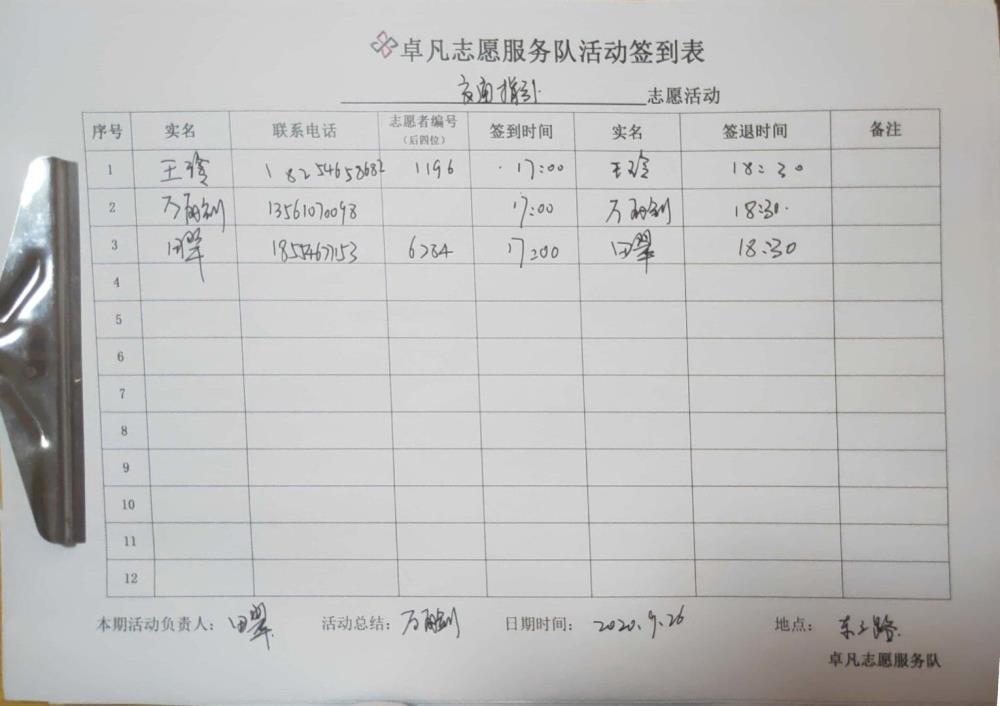 卓凡志愿服务队活动签到表
交通指引 志愿活动
序号 实名 联系电话 志愿者编号（后四位） 签到时间 实名 签退时间 备注
1 王玲 18254658682 1196 17:00 王玲 18:30
2 万 13561070098 17:00 万 18:30
3 田翠 18554671153 6284 17:00 田翠 18:30
4
5
6
7
8
9
10
11
12
本期活动负责人：田翠 活动总结：万 日期时间：2020.9.26 地点：东三路
卓凡志愿服务队